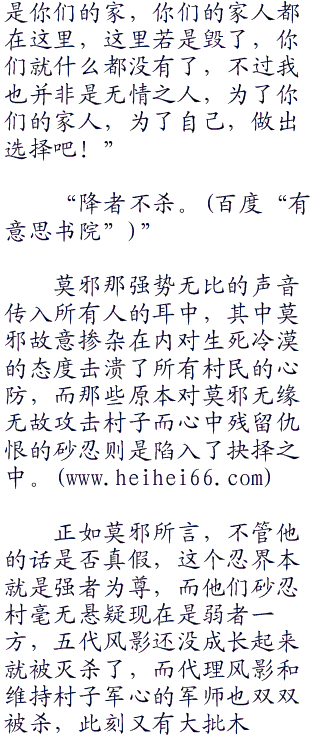 是你们的家，你们的家人都
在这里，这里若是毁了，你
们就什么都没有了，不过我
也并非是无情之人，为了你
们的家人，为了自己，做出
选择吧！”
“降者不杀。(百度“有
意思书院”)”
莫邪那强势无比的声音
传入所有人的耳中，其中莫
邪故意掺杂在内对生死冷漠
的态度击溃了所有村民的心
防，而那些原本对莫邪无缘
无故攻击村子而心中残留仇
恨的砂忍则是陷入了抉择之
中。(www.heihei66.com)
正如莫邪所言，不管他
的话是否真假，这个忍界本
就是强者为尊，而他们砂忍
村毫无悬疑现在是弱者一
方，五代风影还没成长起来
就被灭杀了，而代理风影和
维持村子军心的军师也双双
被杀，此刻又有大批木